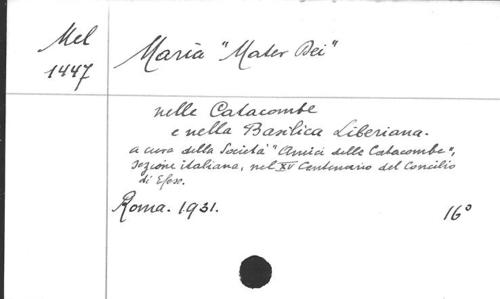 Mel
1447
Maria "Mater Dei"
nelle Catacombe
e nella Basilica Liberiana.
a cura della Società "Amici delle Catacombe",
sezione italiana, nel XV Centenario del Concilio
di Efeso.
Roma. 1931.
16°